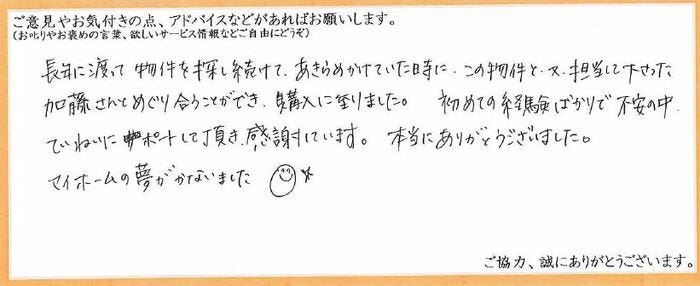 ご意見やお気付きの点、アドバイスなどがあればお願いします。
(お叱りやお褒めの言葉、欲しいサービス情報などご自由にどうぞ)
長年に渡って物件を探し続けて、あきらめかけていた時に、この物件と又、担当して下さった
加藤さんとめぐり合うことができ、購入に至りました。 初めての経験ばかりで不安の中、
ていねいにサポートして頂き、感謝しています。 本当にありがとうございました。
マイホームの夢がかないました
ご協力、誠にありがとうございます。